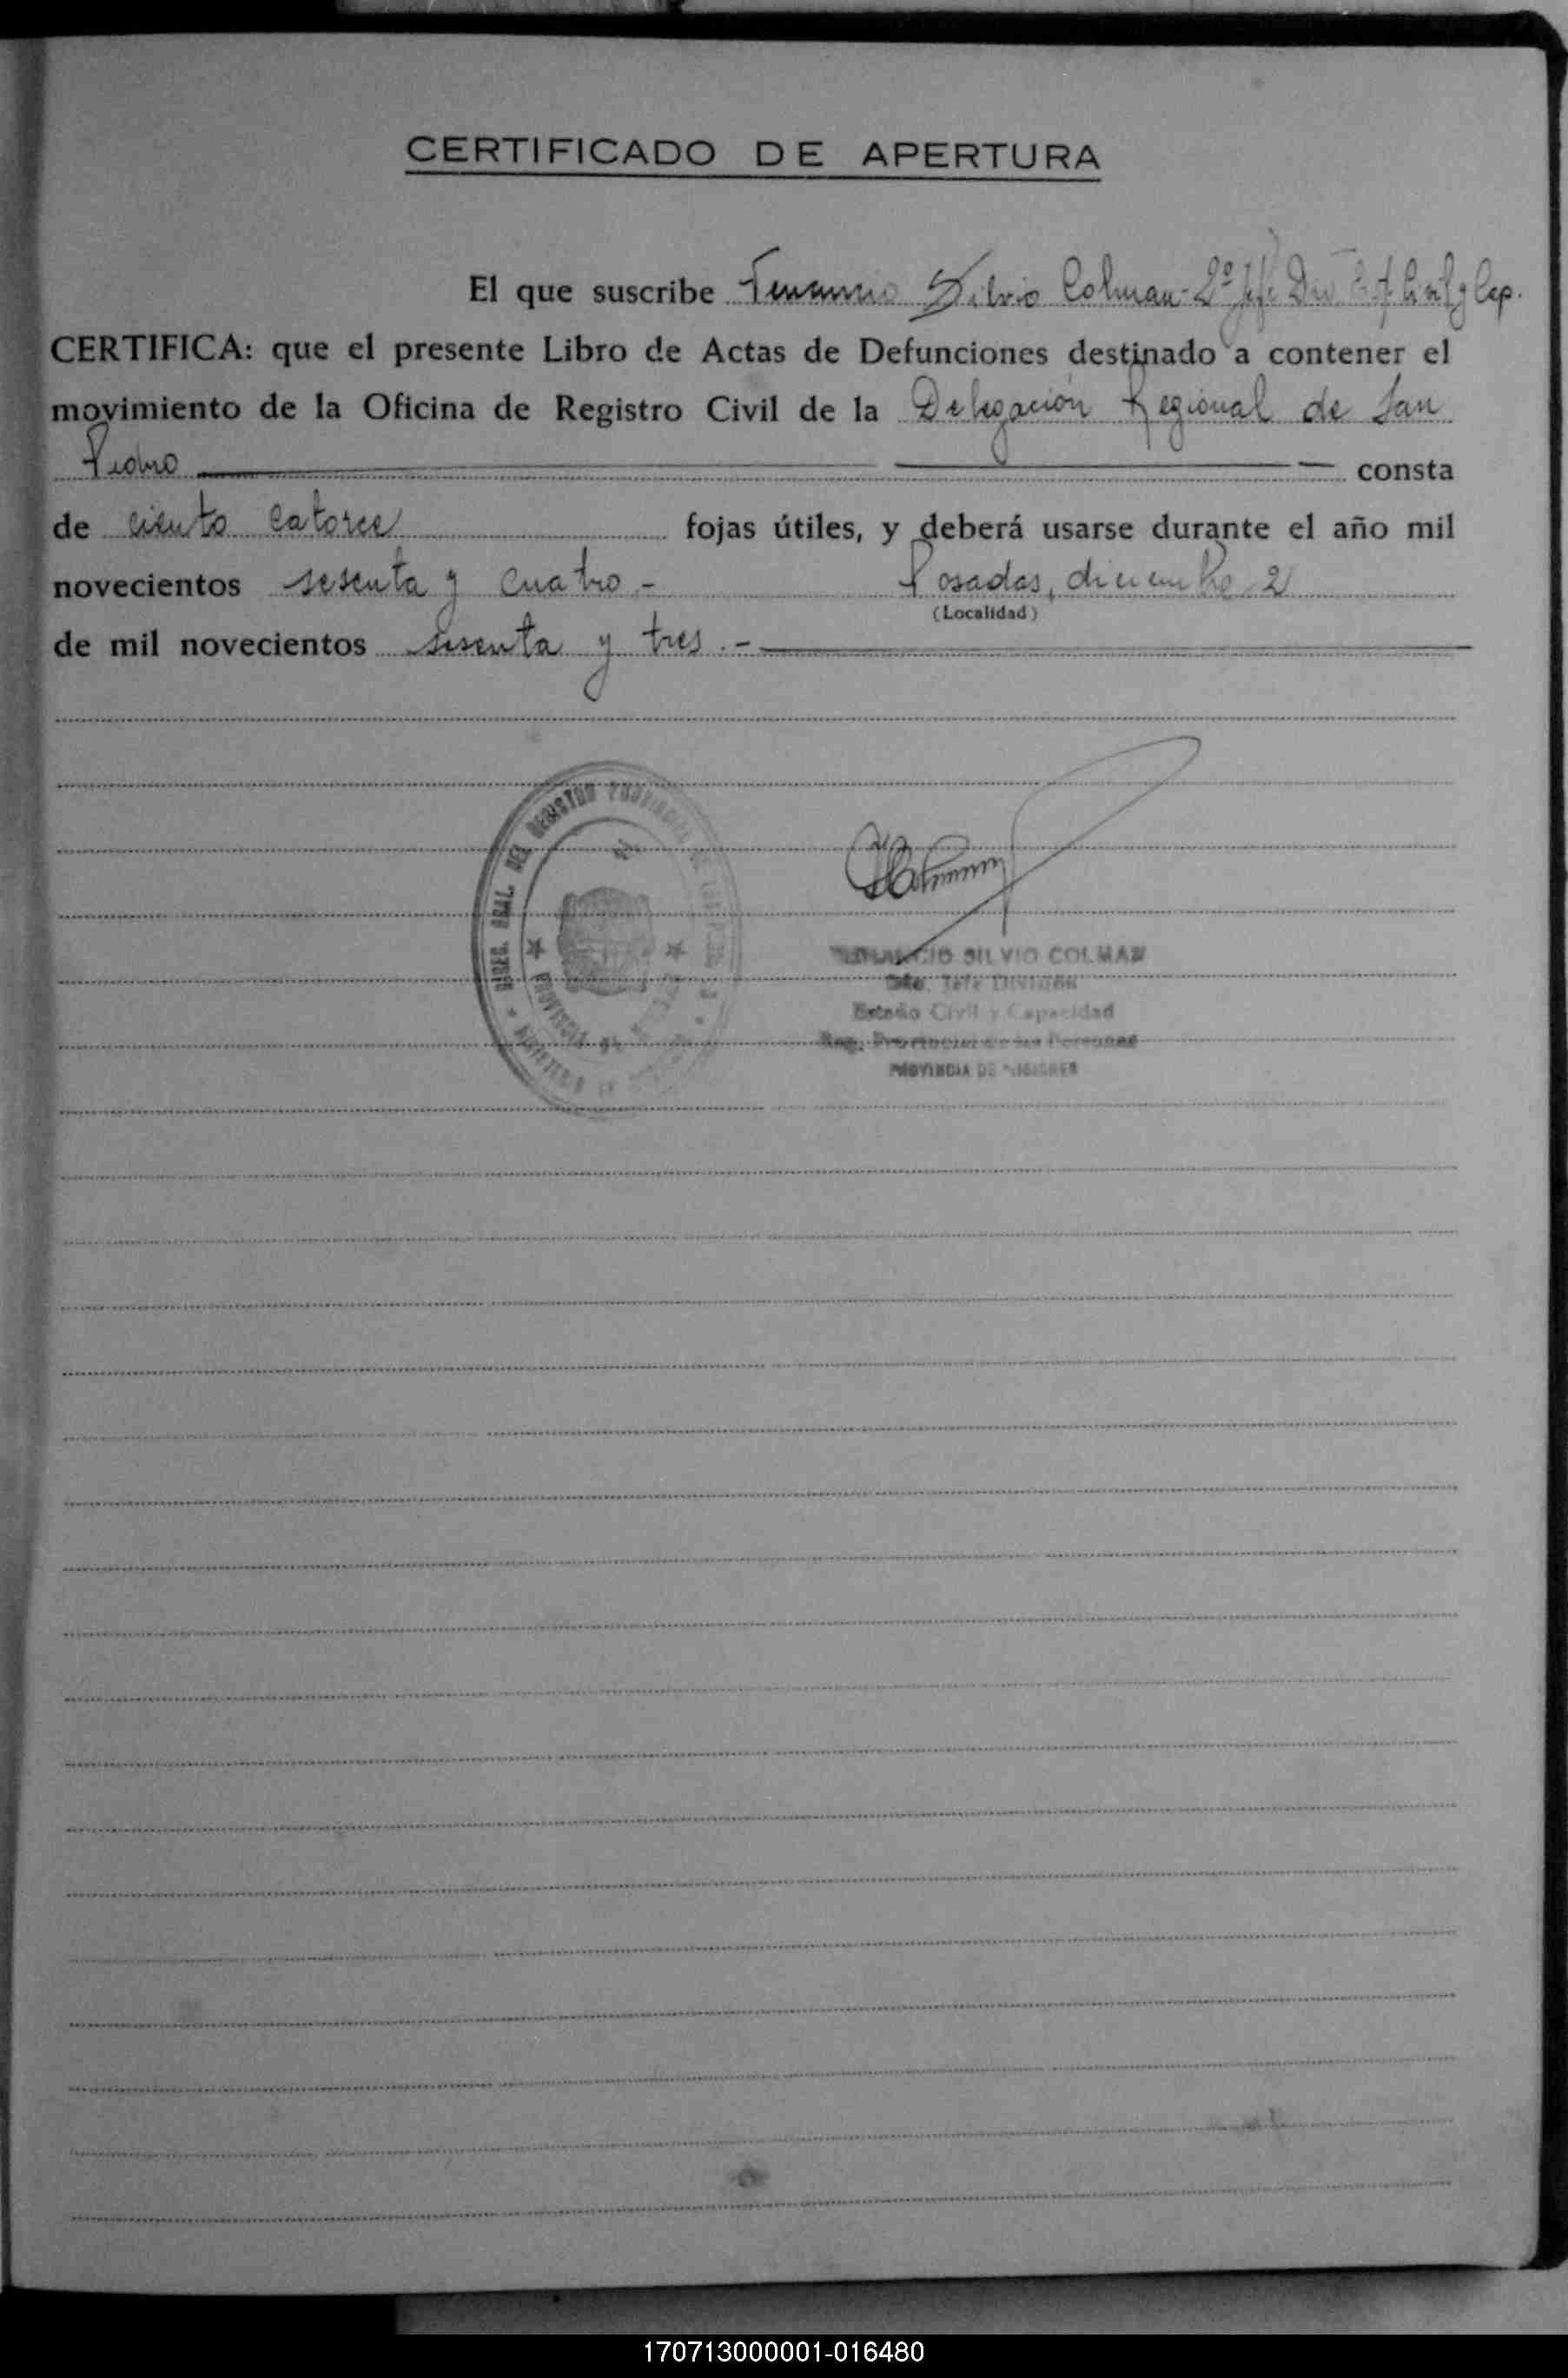 CERTIFICADO DE APERTURA
El que suscribe Silvio Colman - 2º Jefe Div. Civil y Cap.
CERTIFICA: que el presente Libro de Actas de Defunciones destinado a contener el
movimiento de la Oficina de Registro Civil de la Delegación Regional de San
Pedro consta
de ciento catorce fojas útiles, y deberá usarse durante el año mil
novecientos sesenta y cuatro.- Posadas, diciembre 2
(Localidad)
de mil novecientos sesenta y tres.-
DIREC. GRAL. DEL REGISTRO PROVINCIAL DE LAS
PROVINCIA DE
SILVIO COLMAN
Jefe División
Estado Civil y Capacidad
Reg. Provincial de las Personas
PROVINCIA DE MISIONES
170713000001-016480